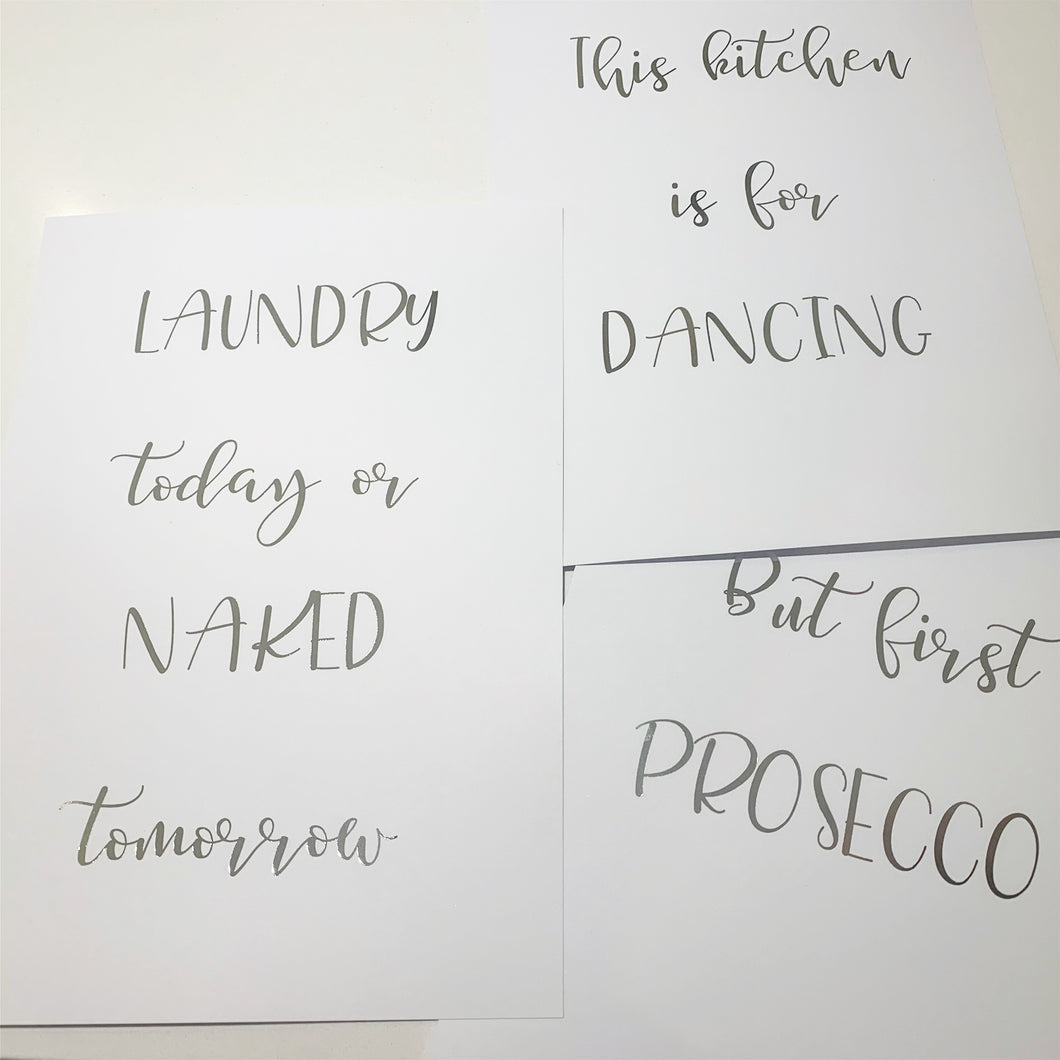 This kitchen
is for
DANCING
LAUNDRY
today or
NAKED
tomorrow
But first
PROSECCO